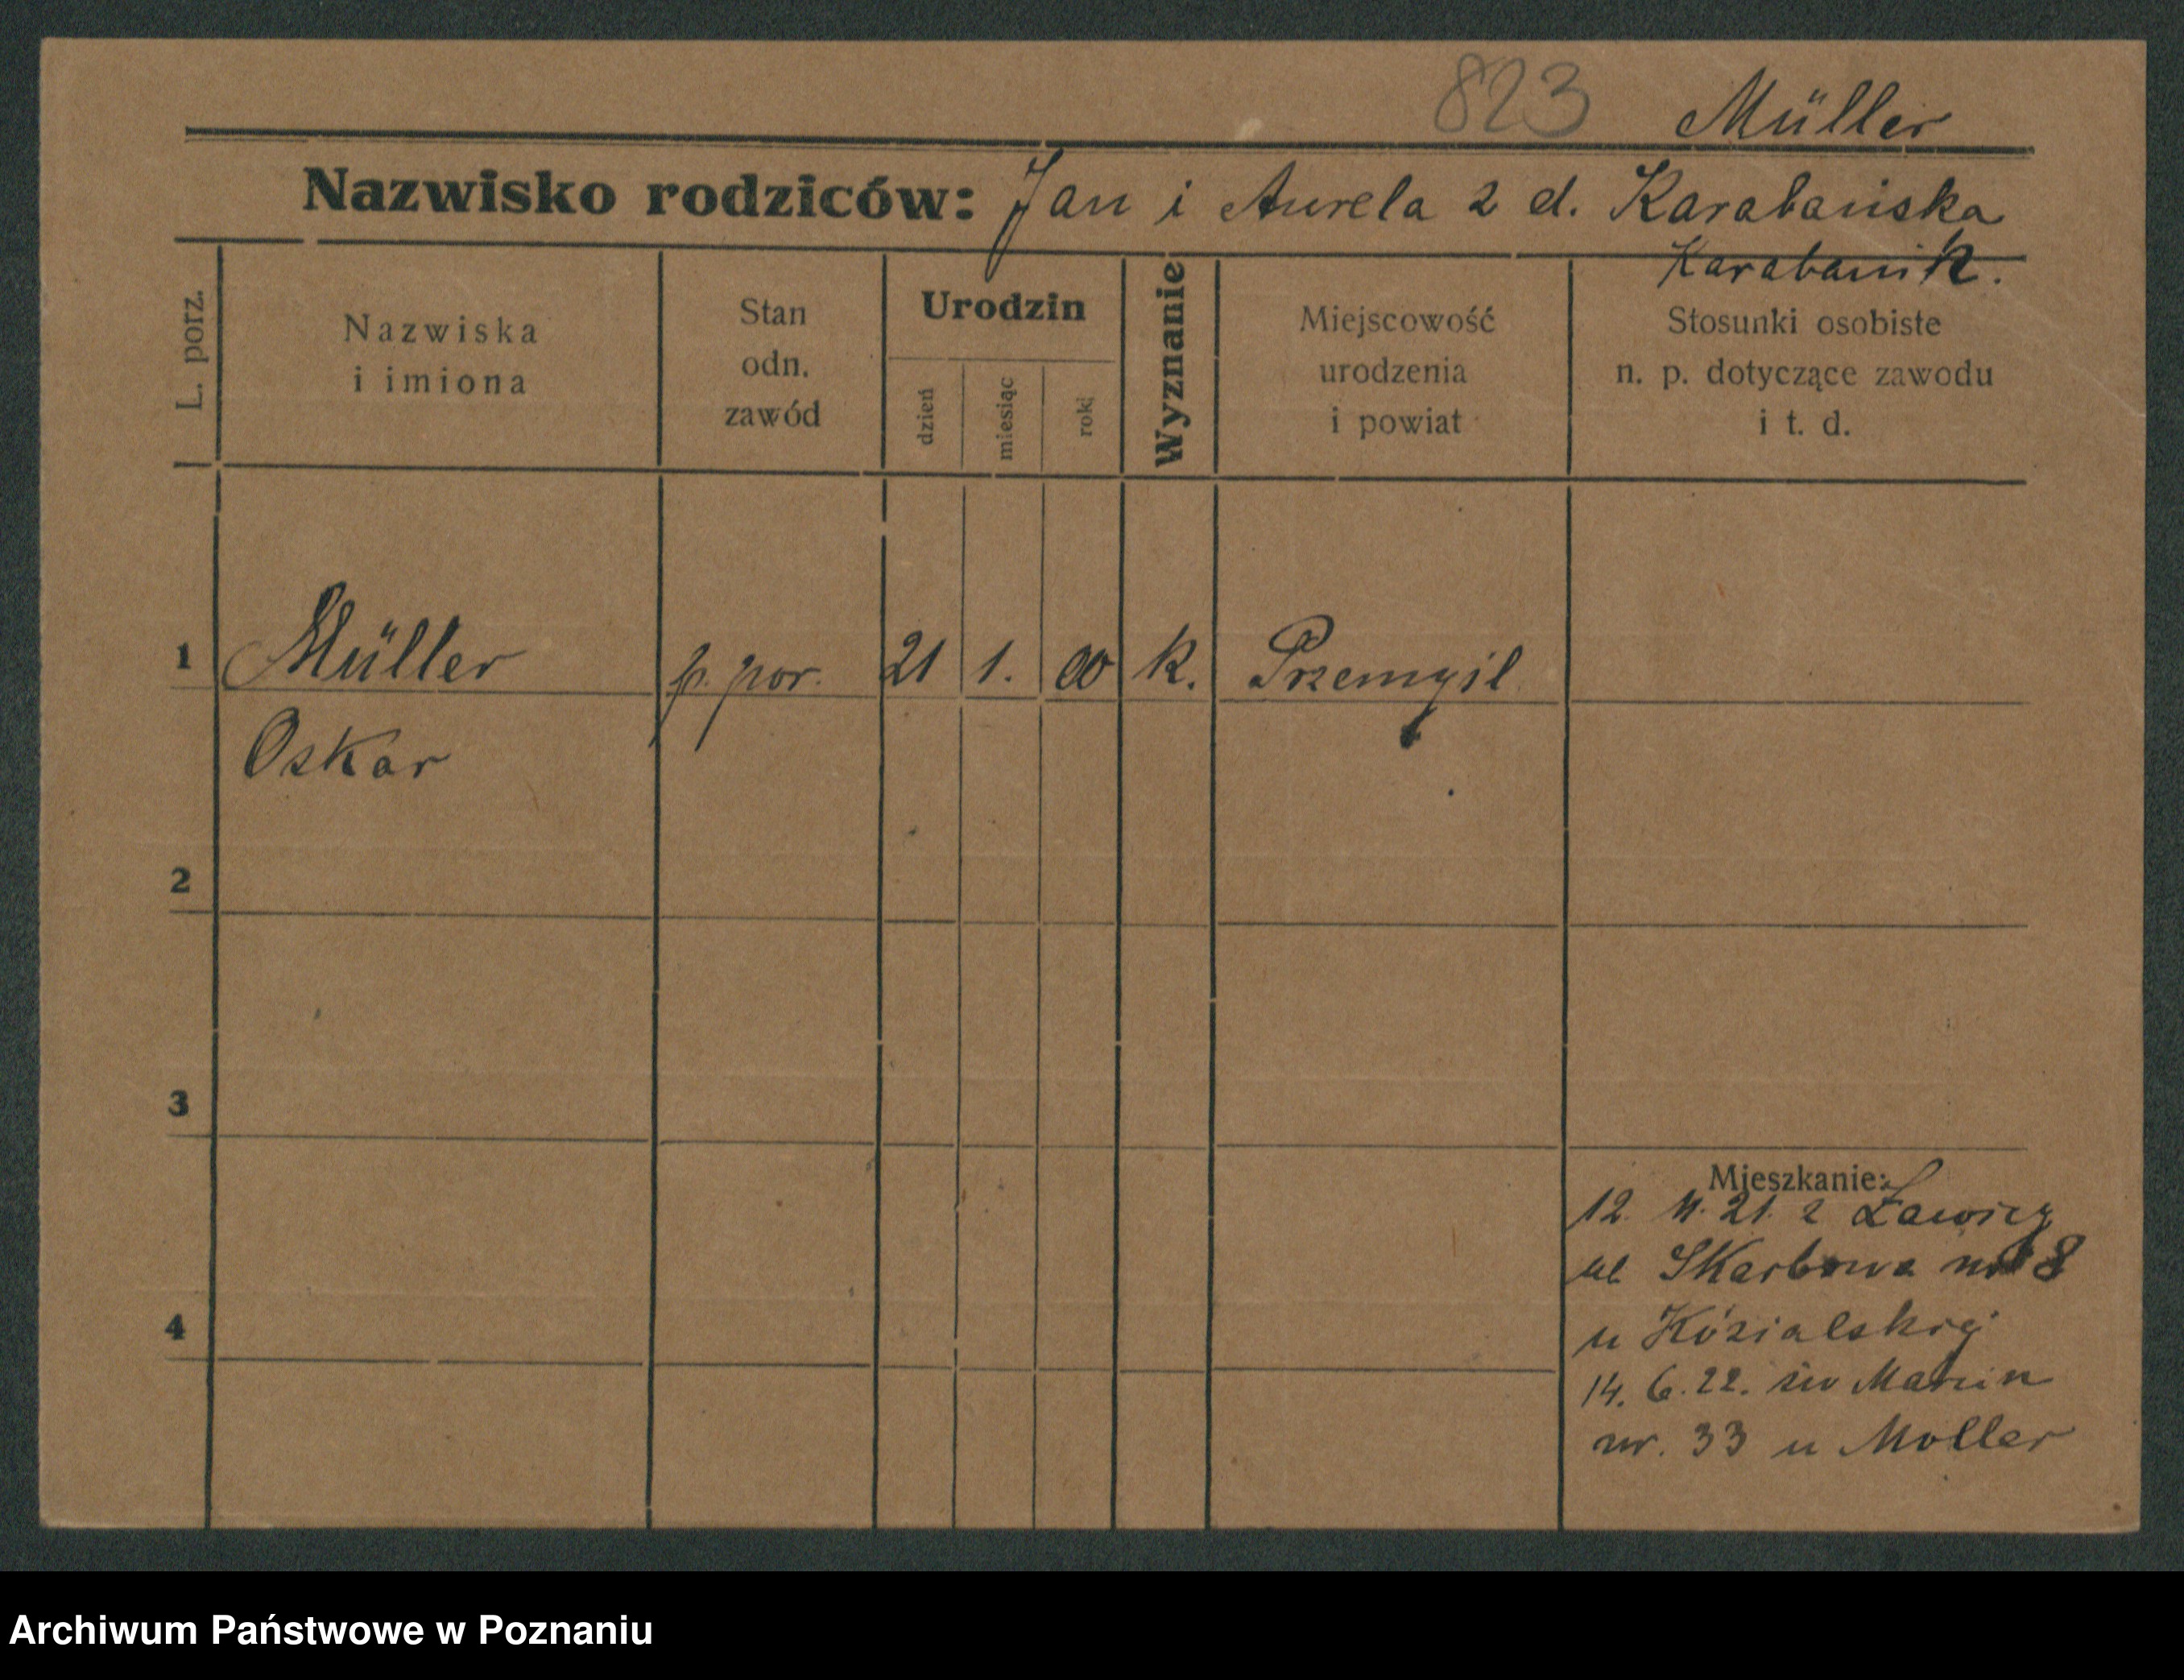 823 Müller
Nazwisko rodziców: Jan i Aurela z d. Karabańska
Karabanik.
L. porz.
Nazwiska
i imiona
Stan
odn.
zawód
Urodzin
dzień
miesiąc
rok
Wyznanie
Miejscowość
urodzenia
i powiat
Stosunki osobiste
n. p. dotyczące zawodu
i t. d.
1 Müller p. por. 21 1. 00 k. Przemyśl
Oskar
2
3
Mieszkanie:
12. 11. 21. z Ławicy
ul Skarbowa 8
4
u Kózialskiej
14. 6. 22. św Marcin
nr. 33 u Moller
Archiwum Państwowe w Poznaniu